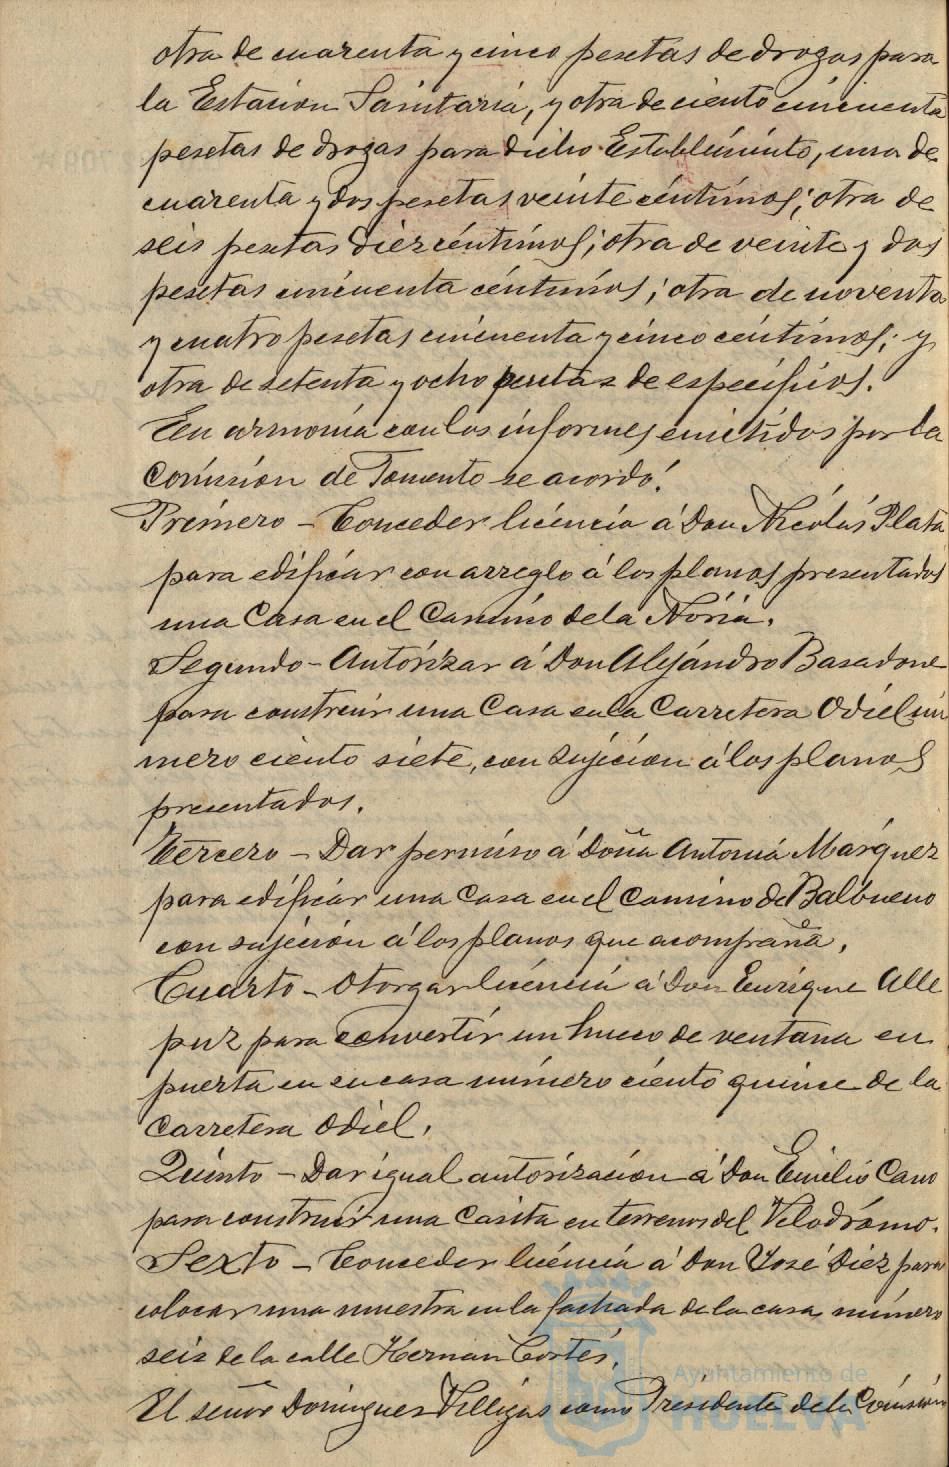 otra de cuarenta y cinco pesetas de drogas para
la Estacion Sanitaria, y otra de ciento cincuenta
pesetas de drogas para dicho Establecimiento, una de
cuarenta y dos pesetas veinte céntimos; otra de
seis pesetas diez céntimos; otra de veinte y dos
pesetas cincuenta céntimos; otra de noventa
y cuatro pesetas cincuenta y cinco céntimos; y
otra de setenta y ocho pesetas de especificos.
En armonia con los informes emitidos por la
Comision de Fomento se acordó:
Primero - Conceder licencia á Don Nicolás Plata
para edificar con arreglo á los planos presentados
una Casa en el Camino de la Noria.
Segundo - Autorizar á Don Alejandro Basadone
para construir una Casa en la Carretera Odiel nú
mero ciento siete, con sujecion á los planos
presentados.
Tercero - Dar permiso á Doña Antonia Márquez
para edificar una casa en el camino de Balbueno
con sujeción á los planos que acompaña.
Cuarto - Otorgar licencia á Don Enrique Alle
puz para convertir un hueco de ventana en
puerta en su casa número ciento quince de la
Carretera Odiel.
Quinto - Dar igual autorización á Don Emilio Cano
para construir una Casita en terrenos del Velodrómo.
Sexto - Conceder licencia á Don José Diez para
colocar una muestra en la fachada de la casa número
seis de la calle Hernan Cortés.
El señor Dominguez Villegas como Presidente de la Comisión
Ayuntamiento de
HUELVA